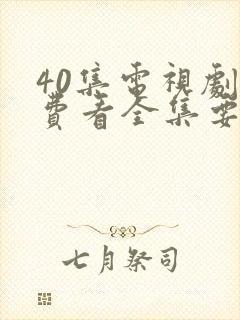 40集電視劇
費看全集要
七月祭司